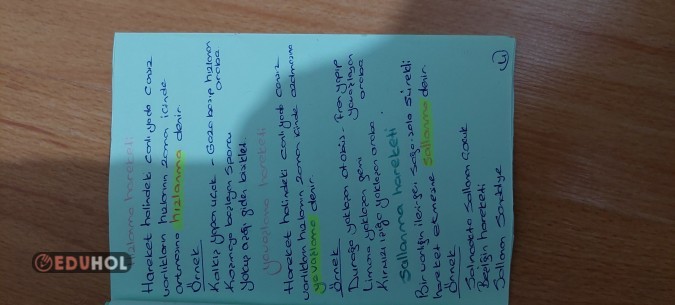 Hızlanma hareketi
Hareket halindeki canlı yada cansız
varlıkların hızlarının zaman içinde
artmasına hızlanma denir.
Örnek
Kalkış yapan uçak - Gaza basıp hızlanan araba
Koşmaya başlayan sporcu
Yokuş aşağı giden bisiklet.
Yavaşlama hareketi
Hareket halindeki canlı yada cansız
varlıkların hızlarının zaman içinde azalmasına
yavaşlama denir.
Örnek
Durağa yaklaşan otobüs - Fren yapıp yavaşlayan araba
Limana yaklaşan gemi
Kırmızı ışığa yaklaşan araba.
Sallanma hareketi
Bir varlığın ileri geri sağa sola sürekli
hareket etmesine sallanma denir.
Örnek
Salıncakta sallanan çocuk
Beşiğin hareketi
Sallanan Sandalye
EDUHOL